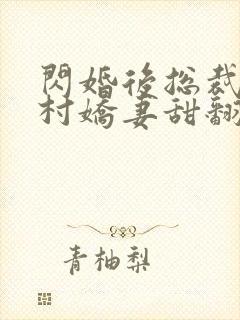 閃婚後總裁
村嬌妻甜翻
青柚梨